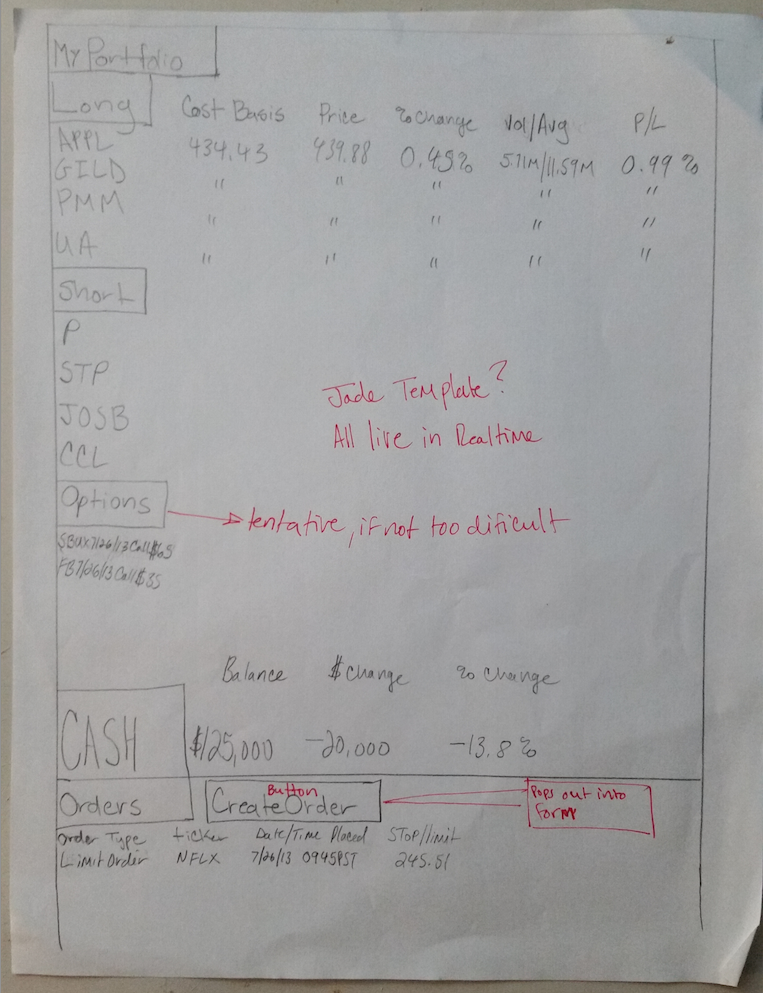 My Portfolio
Long Cost Basis Price % Change Vol/Avg P/L
APPL 434.43 439.88 0.45% 5.71M/11.59M 0.99 %
GILD " " " " "
PMM " " " " "
UA " " " " "
Short
P
STP
JOSB
CCL
Jade Template?
All live in Realtime
Options
tentative, if not too dificult
SBUX7/26/13Call$65
FB7/26/13Call$35
Balance $ change % change
CASH $125,000 -20,000 -13.8%
Orders
Button
Create Order
Pops out into
form
Order Type ticker Date/Time Placed Stop/limit
Limit Order NFLX 7/26/13 0945PST 245.51